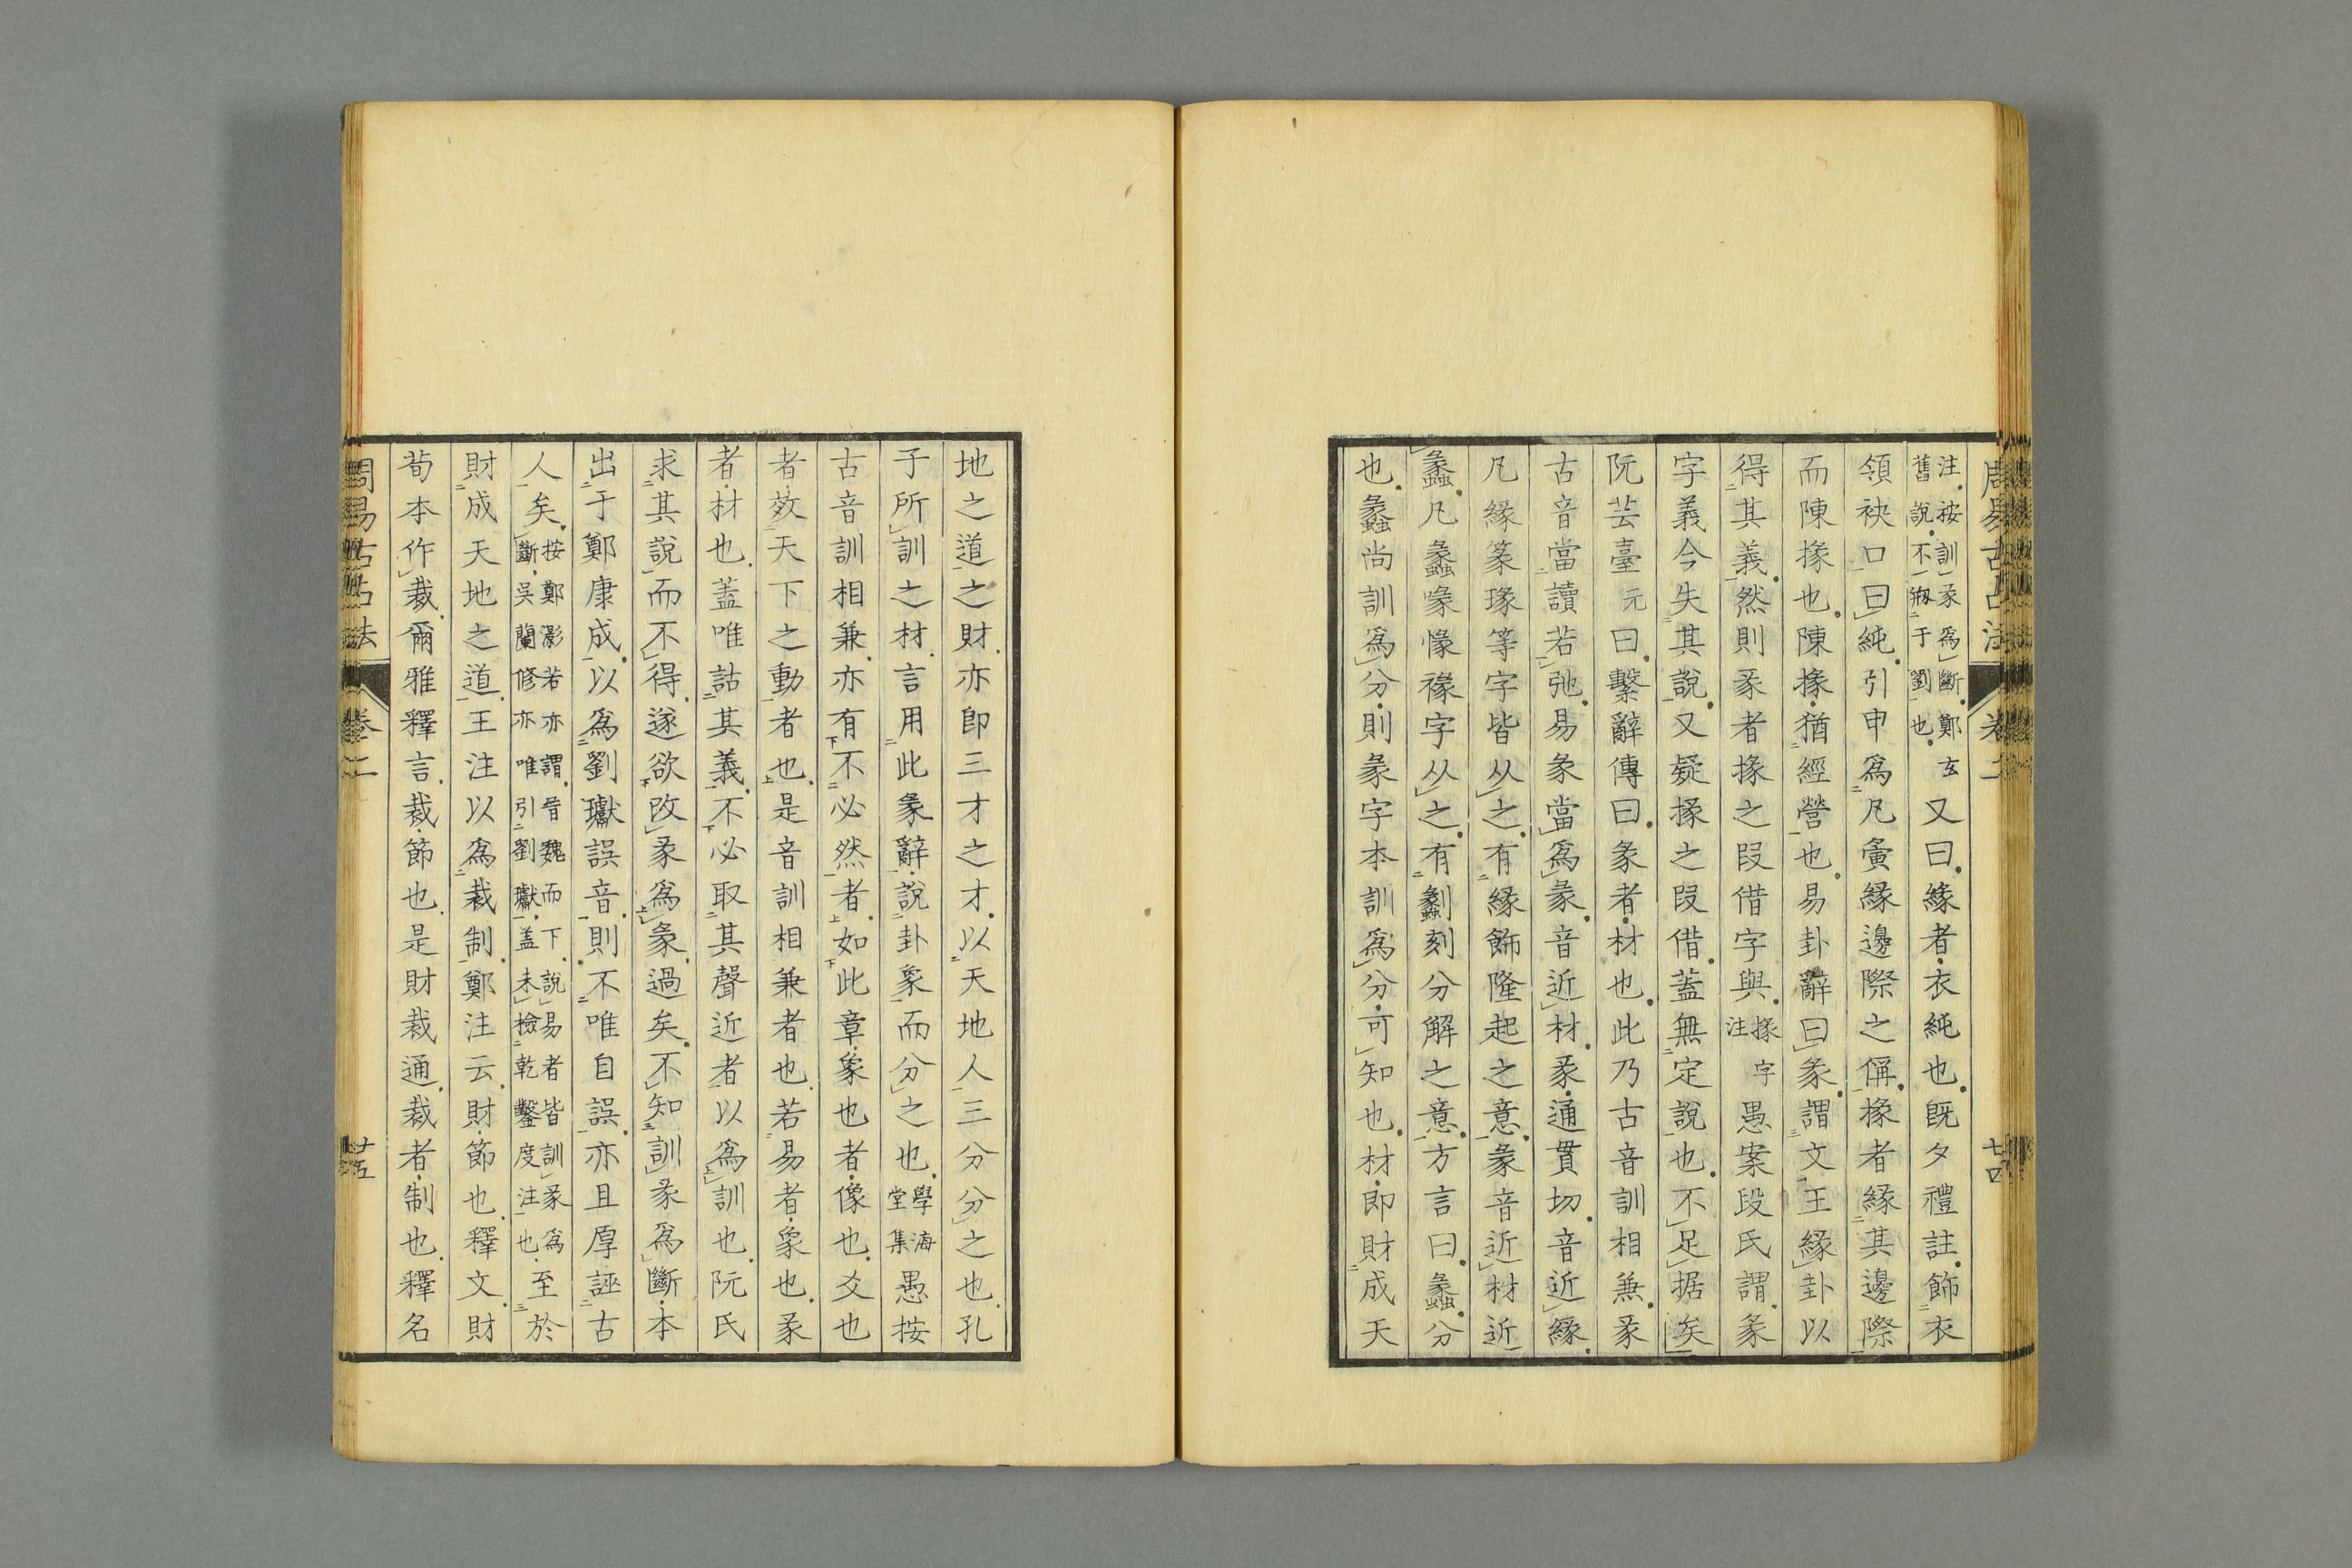 周易古占法 卷二 廿四
注按訓彖爲斷鄭玄舊說不㓝于劉也又曰緣者衣純也旣夕禮註飾衣
領袂口曰純引申爲凡夤緣邊際之偁掾者緣其邊際
而陳掾也陳掾猶經營也易卦辭曰彖謂文王緣卦以
得其義然則彖者掾之叚借字與掾字注愚案段氏謂彖
字義今失其說又疑掾之叚借蓋無定說也不足据矣
阮芸臺元曰繫辭傳曰彖者材也此乃古音訓相兼彖
古音當讀若弛易彖當爲彖音近材彖通貫切音近緣
凡緣篆瑑等字皆从之有緣飾隆起之意彖音近材近
蠡凡蠡喙㥟禒字从之有劙刻分解之意方言曰蠡分
也蠡尚訓爲分則彖字本訓爲分可知也材即財成天
地之道之財亦即三才之才以天地人三分分之也孔
子所訓之材言用此彖辭說卦象而分之也學海堂集愚按
古音訓相兼亦有不必然者如此章象也者像也爻也
者效天下之動者也是音訓相兼者也若易者象也彖
者材也蓋唯詁其義不必取其聲近者以爲訓也阮氏
求其說而不得遂欲改彖爲彖過矣不知訓彖爲斷本
出于鄭康成以爲劉瓛誤音則不唯自誤亦且厚誣古
人矣按鄭瀏若亦謂晉魏而下說易者皆訓彖爲斷吳蘭修亦唯引劉瓛蓋未檢乾鑿度注也至於
財成天地之道王注以爲裁制鄭注云財節也釋文財
荀本作裁爾雅釋言裁節也是財裁通裁者制也釋名
周易古占法 卷二 廿五